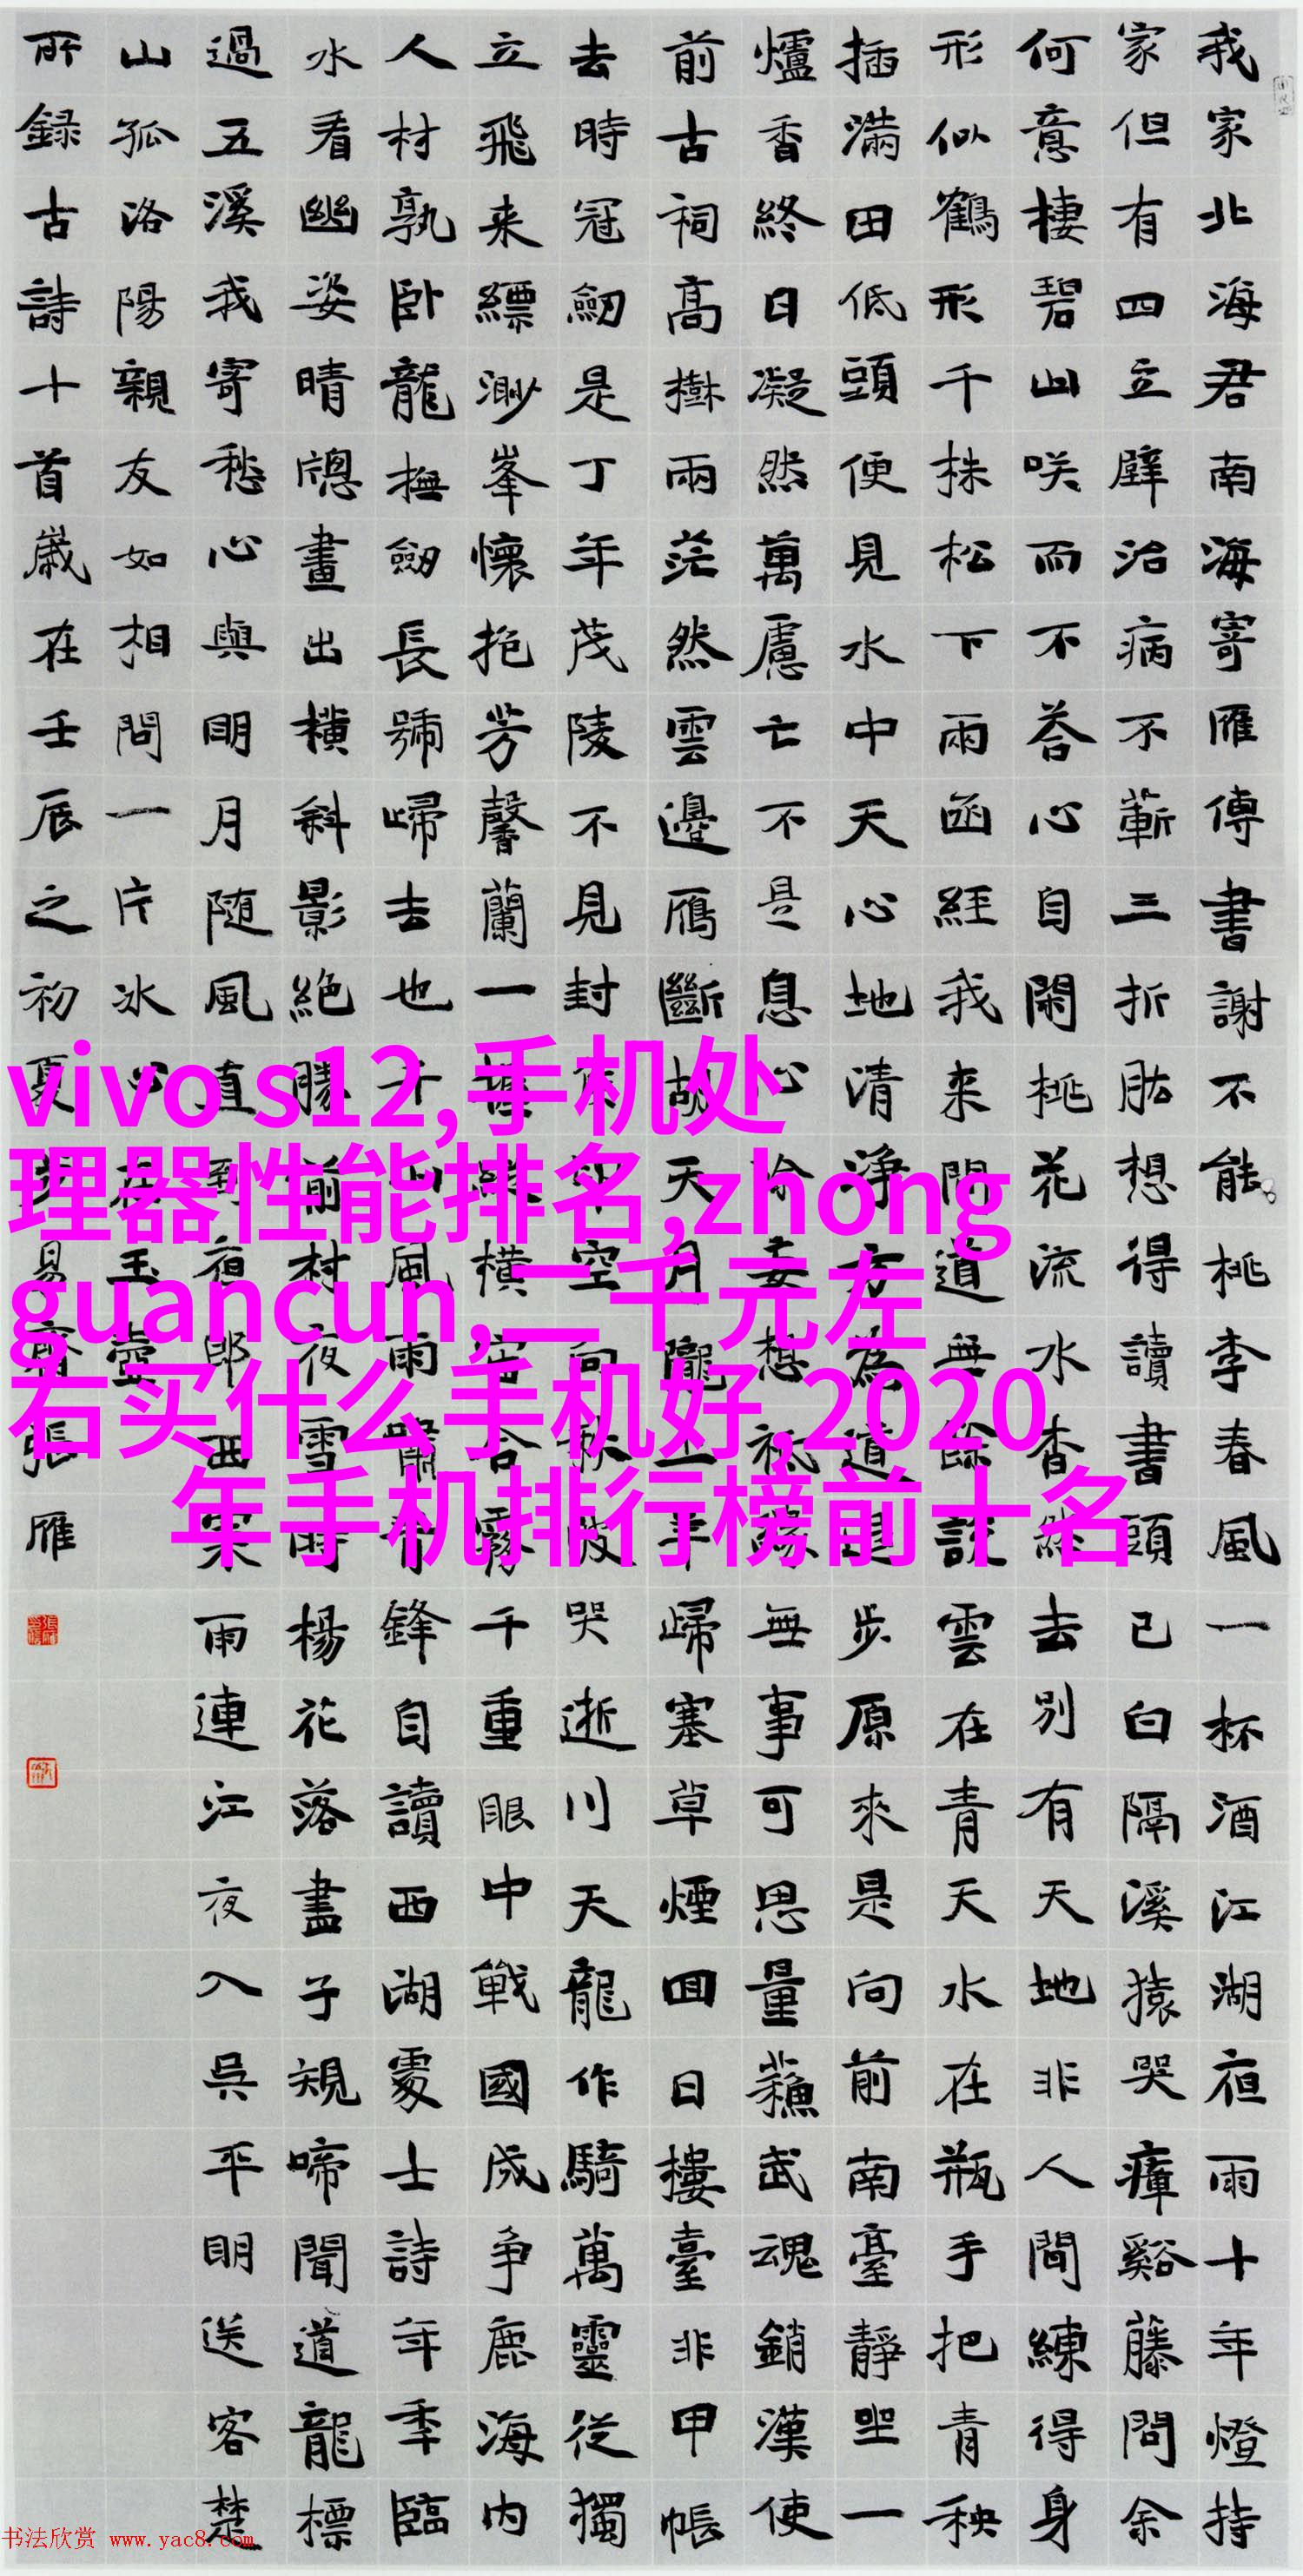 我家北海君南海寄雁傳書謝不能桃李春風一杯酒江湖夜雨十年燈持
家但有四立壁治病不蘄三折肱想得讀書頭已白隔溪猿哭瘴谿藤問余
何意棲碧山咲而不荅心自閑桃花流水杳然去別有天地非人間練得身
形似鶴形千株松下兩函經我来問道無餘說雲在青天水在瓶手把青秧
插滿田低頭便見水中天心地清淨方為道退步原來是向前南臺靜坐一
爐香終日凝然萬慮亡不是息心除妄想祗緣無事可思量蘇武魂銷漢使
前古祠高樹兩茫然雲邊雁斷胡天月隴上羊歸塞草煙回日樓臺非甲帳
去時冠劒是丁年茂陵不見封侯印空向秋波哭逝川天龍作騎萬靈從獨
立飛来縹渺峯懷抱芳馨蘭一握縱橫宙合霧千重眼中戰國成争鹿海内
人材孰臥龍撫劒長號歸去也千山風雨嘯青鋒自讀西湖處士詩年年臨
水看幽姿晴窻畫出橫斜影絕勝前村夜雪時楊花落盡子規啼聞道龍標
過五溪我寄愁心與明月随風直到夜郎西寒雨連江夜入吳平明送客楚
山孤洛陽親友如相問一片冰心在玉壺
所録古詩十首歲在壬辰之初夏易齋張雁
vivo s12,手机处
理器性能排名,zhong
guancun,二千元左
右买什么手机好,2020
年手机排行榜前十名
书法欣赏 www.yac8.com